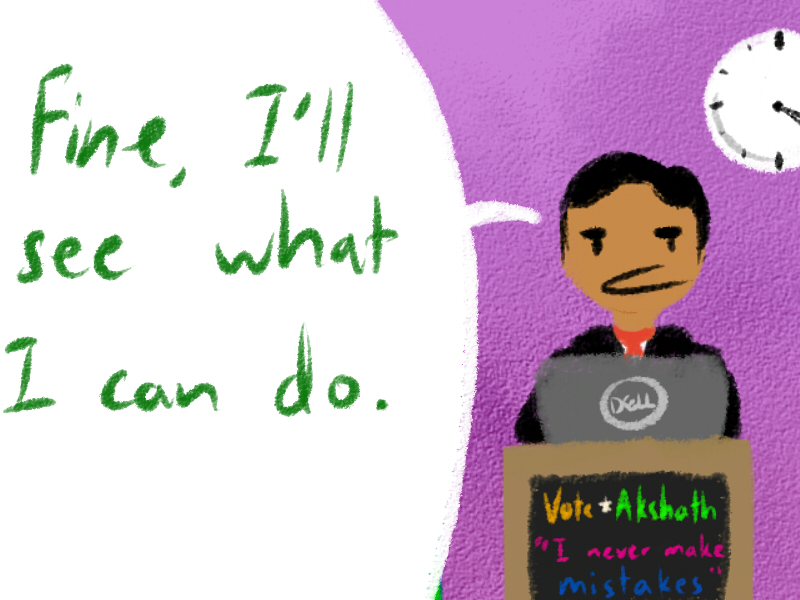 Fine, I'll
see what
I can do.
DELL
Vote * Akshath
"I never make
mistakes"